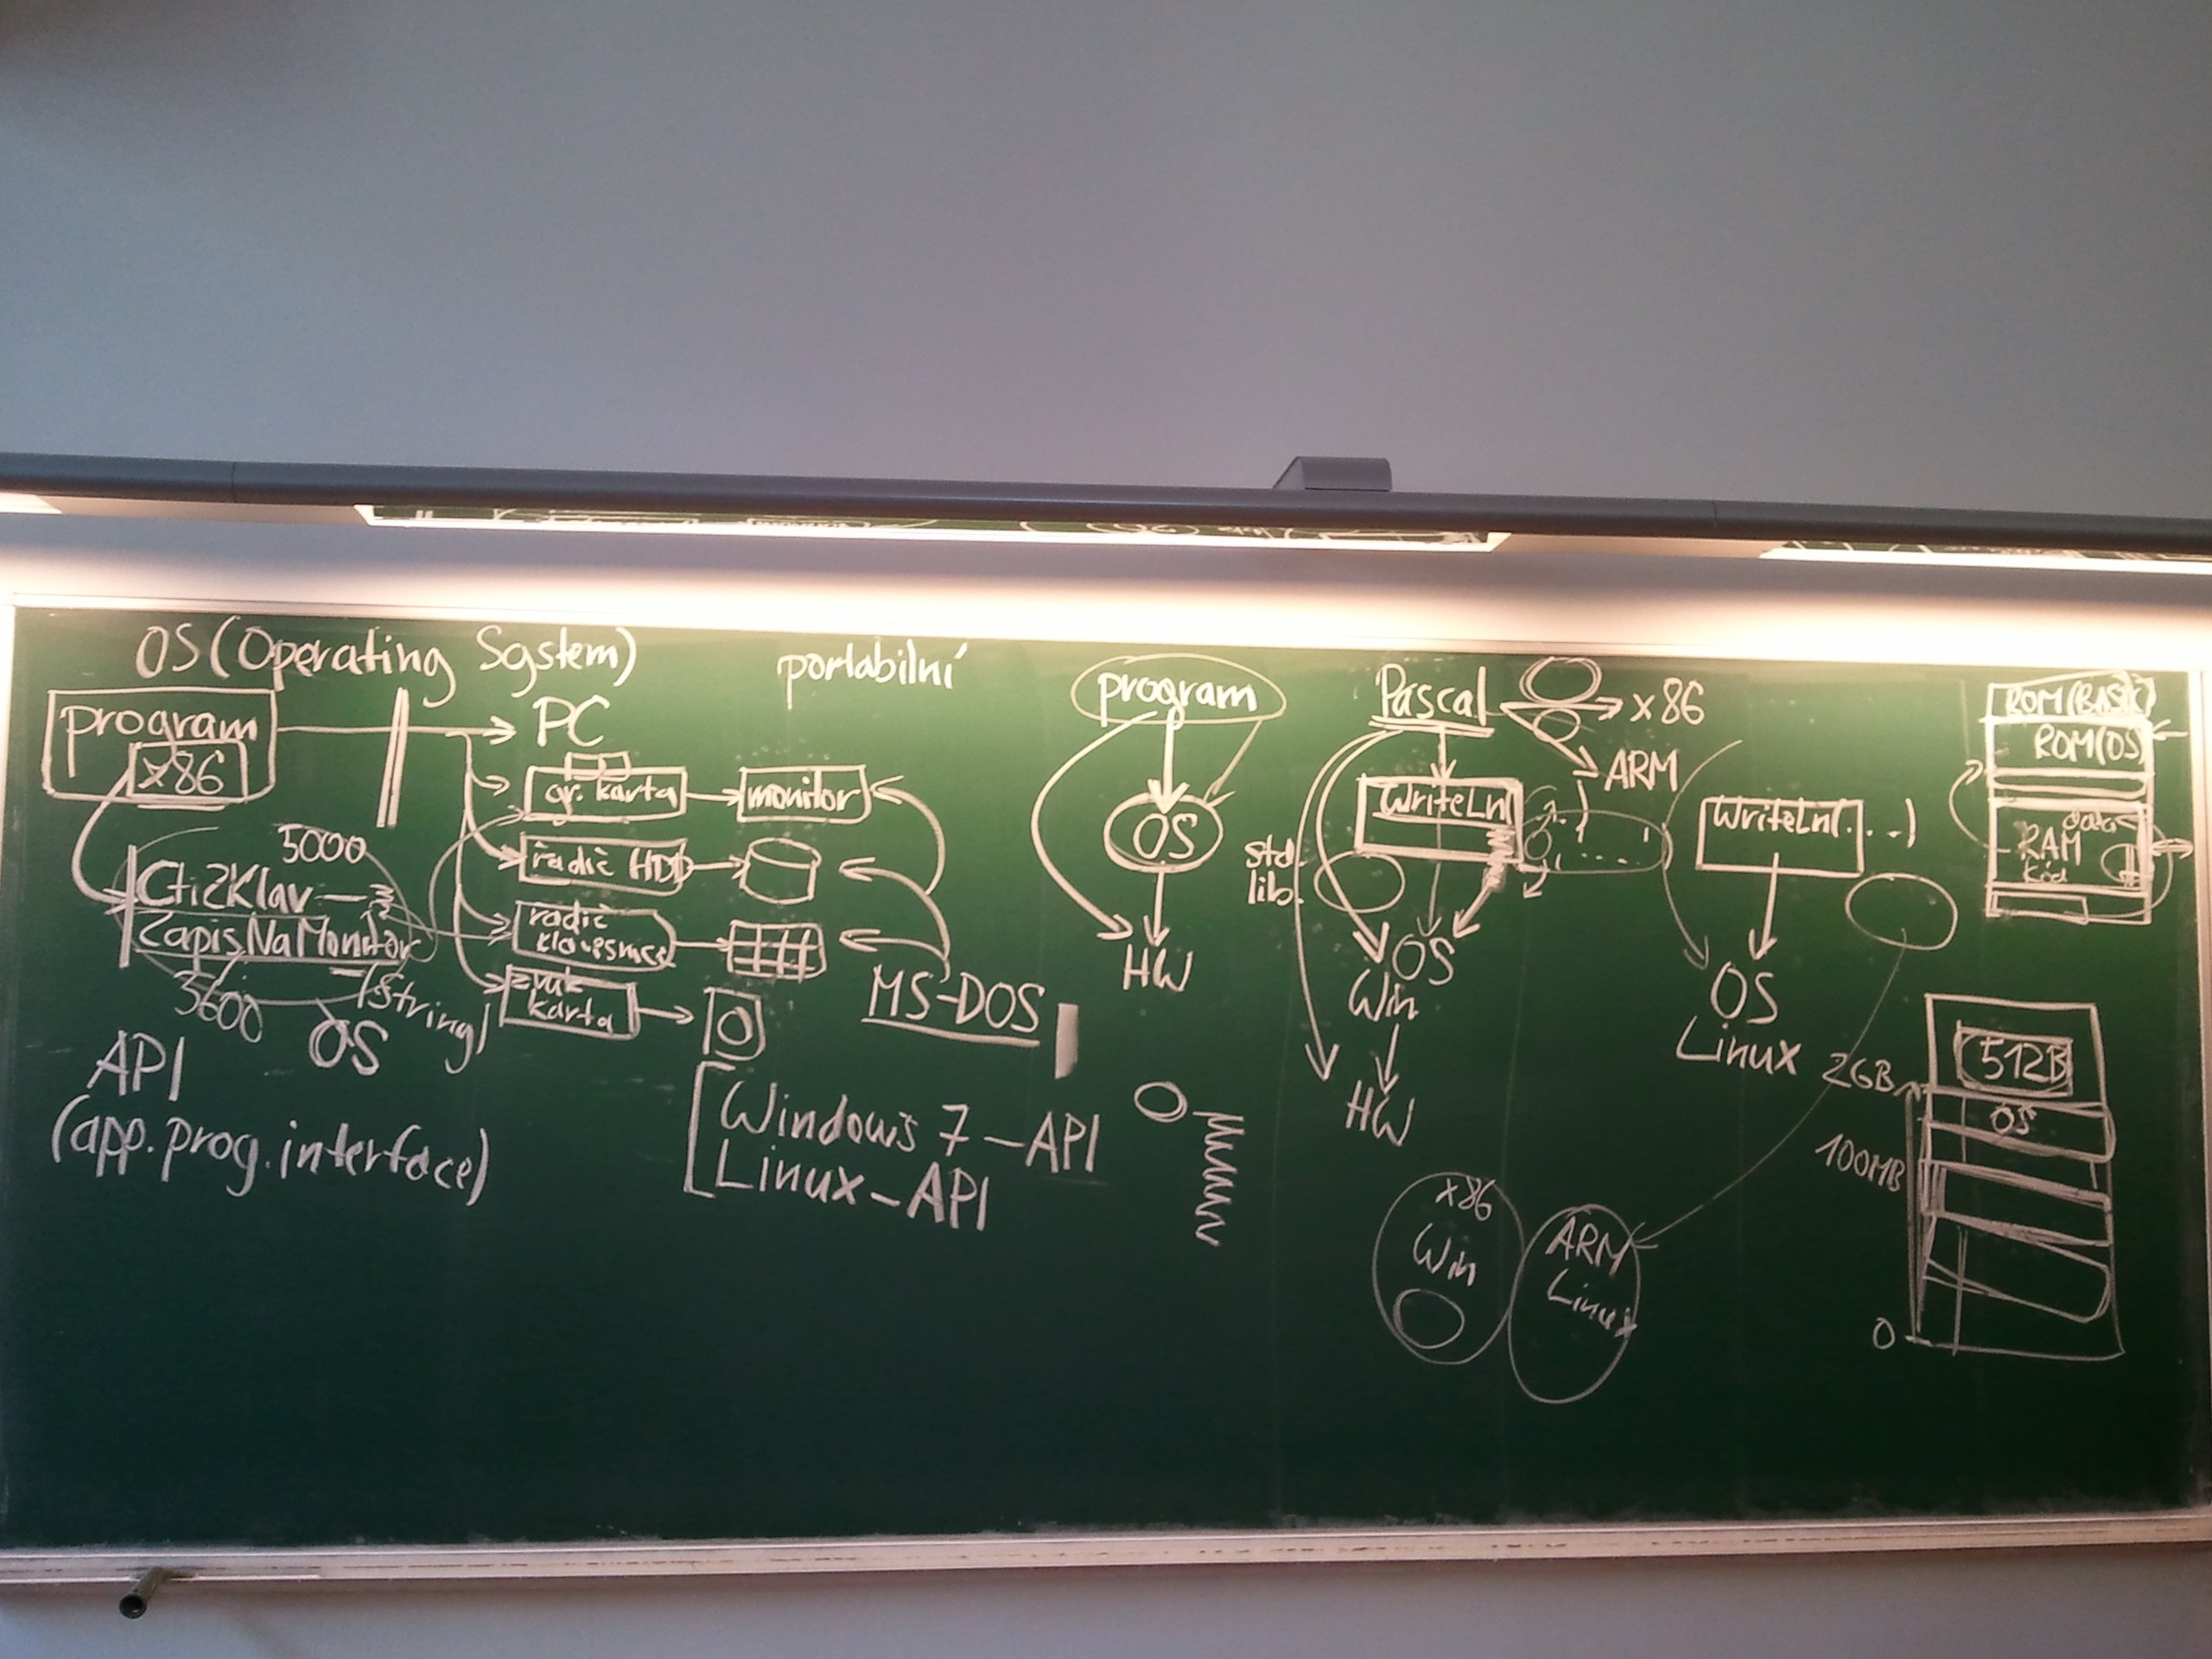 OS (Operating System)
program
x86
5000
CtiZKlav
ZapisNaMonitor
(string)
3600
OS
API
(app. prog. interface)
PC
gr. karta
monitor
řadič HDD
řadič
klávesnice
zvuk
karta
portabilní
MS-DOS
Windows 7 - API
Linux - API
program
OS
HW
Pascal
x86
ARM
WriteLn
std.
lib.
OS
Win
HW
WriteLn(...)
OS
Linux
x86
Win
ARM
Linux
ROM (BASIC)
ROM (OS)
data
RAM
kód
512B
2GB
OS
100MB
0